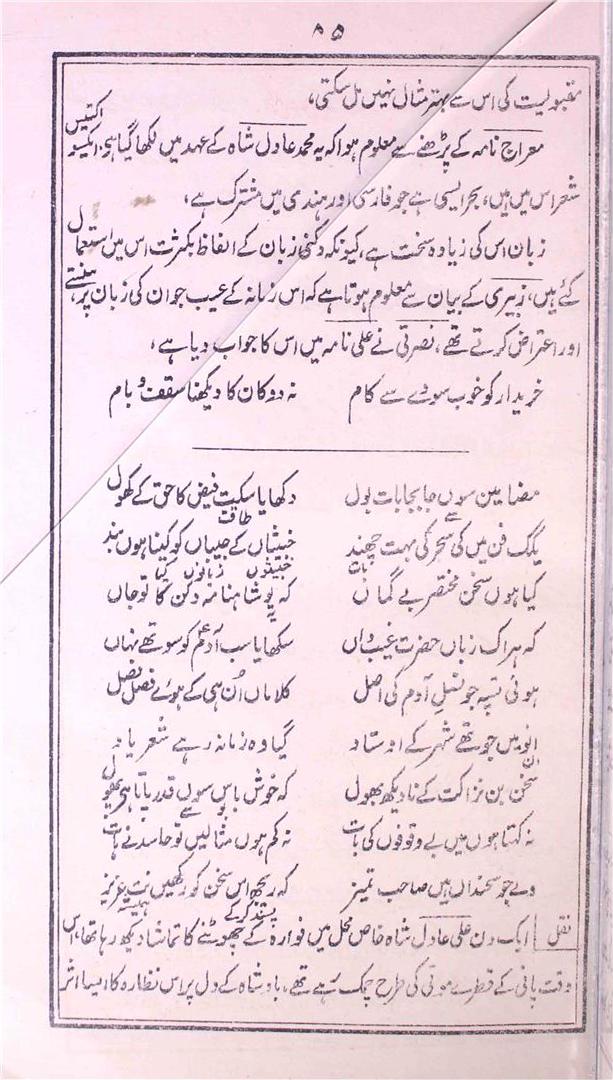 ۸۵
مقبولیت کی اس سے بہتر مثال نہیں مل سکتی،
معراج نامہ کے پڑھنے سے معلوم ہوا کہ یہ محمد عادل شاہ کے عہد میں لکھا گیا ہے، اکتیس
شعر اس میں ہیں، بحر ایسی ہے جو فارسی اور ہندی میں مشترک ہے،
زبان اس کی زیادہ سخت ہے، کیونکہ دکنی زبان کے الفاظ بکثرت اس میں استعمال
کئے ہیں، زبیری کے بیان سے معلوم ہوتا ہے کہ اس زمانہ کے عیب جو ان کی زبان پر، ہنستے
اور اعتراض کرتے تھے، نصرتی نے علی نامہ میں اس کا جواب دیا ہے،
خریدار کو خوب سودے سے کام نہ دوکان کا دیکھنا سقف و بام
مضامین سوں جا بجا بات بول دکھایا سکت فیض کا حق کے کھول
سے طاقت
یک فن میں کی سحر کی بہت چھند خبیثاں کے جیباں کو کیتا ہوں بند
بات خبیثوں زبانوں کیا
کیا ہوں سخن مختصر بے گماں کہ یو شاہنامہ دکن کا تو جاں
یہ
کہ ہر اک زباں حضرت غیب داں سکھایا سب آدم کو سو تھے نہاں
ہوئی تسپہ جو نسل آدم کی اصل کلاماں اُن ہی کے ہوئے فصل فصل
انو میں جو تھے شہر کے اوستاد گیا وہ زمانہ رہے شعر یاد
ان
سخن بن نزاکت کے نا دیکھ بھول کہ خوش باس سوں قدر پاتا ہے پھول
بو سے
نہ کہتا ہوں میں بے وقوفوں کی بات نہ کم ہوں مثالیں تو حاسد نے ہات
ولے جو سخنداں ہیں صاحب تمیز کہ ریجھ اس سخن کو رکھیں نت عزیز
پسند کر کے ہمیشہ
نقل ایک دن علی عادل شاہ خاص محل میں فوارہ کے چھوٹنے کا تماشا دیکھ رہا تھا، اس
وقت پانی کے قطرے موتی کی طرح چمک رہے تھے، بادشاہ کے دل پر اس نظارہ کا ایسا اثر